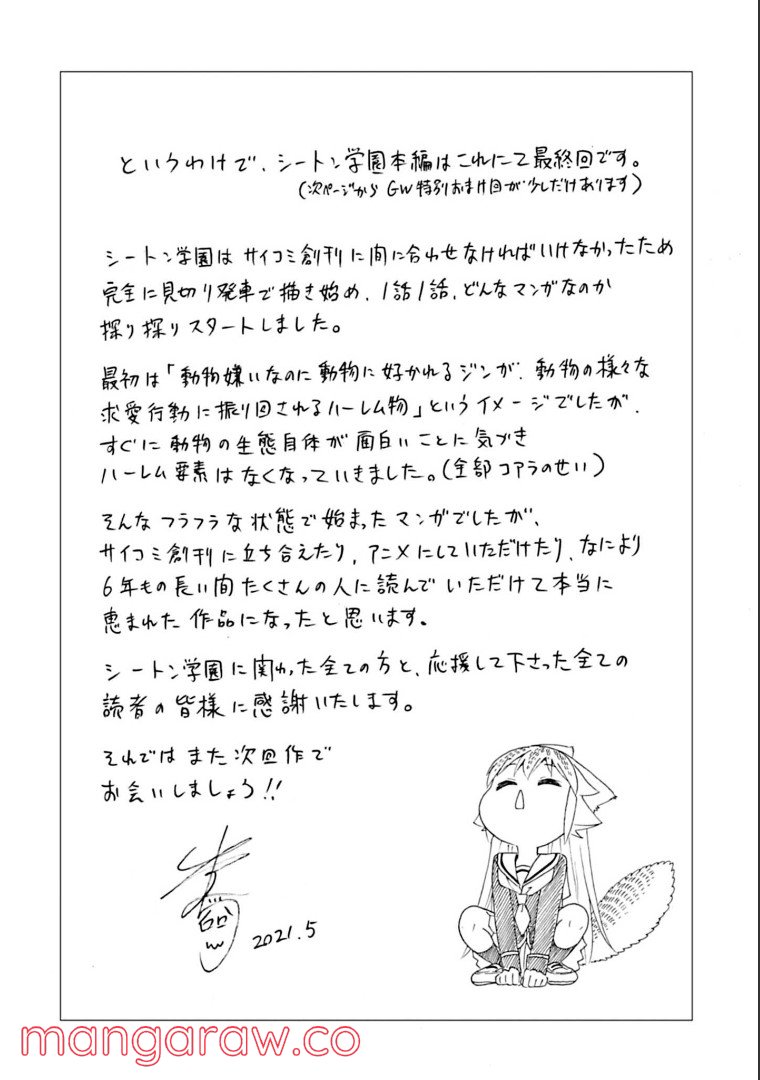 というわけで、シートン学園本編はこれにて最終回です。
(次ページから GW特別おまけ回が少しだけあります)
シートン学園は サイコミ創刊に間に合わせなければいけなかったため
完全に見切り発車で描き始め、1話1話、どんなマンガなのか
探り探りスタートしました。
最初は「動物嫌いなのに動物に好かれるジンが、動物の様々な
求愛行動に振り回されるハーレム物」というイメージでしたが、
すぐに動物の生態自体が面白いことに気づき
ハーレム要素はなくなっていきました。(全部コアラのせい)
そんなフラフラな状態で始まったマンガでしたが、
サイコミ創刊に立ち合えたり、アニメにしていただけたり、なにより
6年もの長い間たくさんの人に読んでいただけて本当に
恵まれた作品になったと思います。
シートン学園に関わった全ての方と、応援して下さった全ての
読者の皆様に感謝いたします。
それではまた次回作で
お会いしましょう!!
2021.5
mangaraw.co